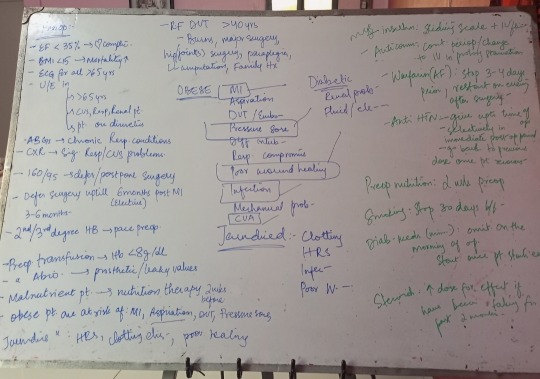 - EF < 35% →
- BMI <15 → Mortality↑
- ECG for all >65 yrs
- U/E in
>65 yrs
CVS, Resp, Renal pt.
pt on diuretics
- ABGs → Chronic Resp. conditions
- CXR → Sig. Resp/CVS problems
- 160/95 → defer/postpone surgery
- Defer surgery uptill 6 months post MI
(Elective)
3-6 months
- 2nd/3rd degree HB → pace preop.
- Preop. transfusion → Hb <8g/dl
- " Abio. → prosthetic/leaky valves
- Malnutrient pt. → nutrition therapy 2wks
before
- obese pt are at risk of: MI, Aspiration, DVT, Pressure sore,
Jaundice " : HRs, clotting dis-, poor healing
- RF DVT >40yrs
- Burns, major surgery,
hip(joints) surgery, paraplegia,
LL amputation, Family Hx
OBESE
MI
Aspiration
DVT / Embo-
Pressure sore
Diff intub-
Resp. compromis
Poor wound healing
Infection
Mechanical prob-
CVA
Diabetic
Renal prob-
Fluid / ele- -
Jaundiced :- Clotting
HRs
Infec-
Poor W- -
insulin: Sliding Scale + IV/
Anticonv: Cont periop/change
to IV in
Warfarin (AF): Stop 3-4 days
prior, restart on evening
after surgery -
Anti HTN - give upto time of
- selectively in
immediate post-op period
- go back to previous
dose once pt
Preop nutrition: 2 wks preop
Smoking: Stop 30 days b/f -
Diab. meds (min): omit on the
morning of op
Start once pt starts
Steroid: ↑ dose for effect if
have been taking for
past 2 months -